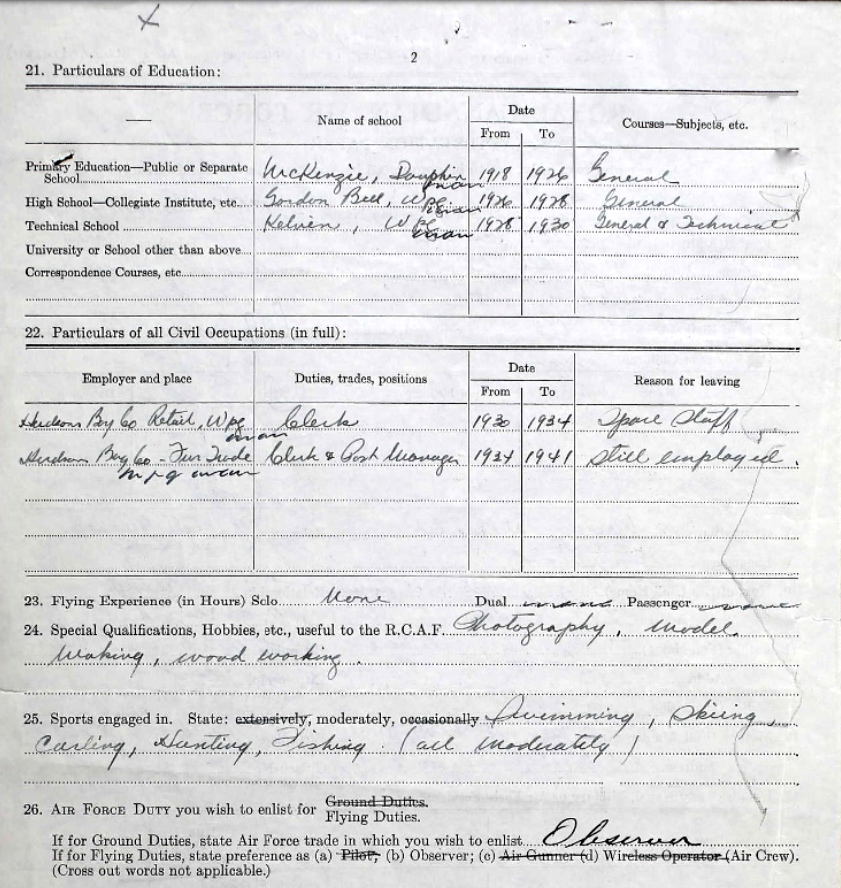 2
21. Particulars of Education:
Name of school
Date
From To
Courses—Subjects, etc.
Primary Education—Public or Separate
School McKenzie, Dauphin 1918 1926 General
man
High School—Collegiate Institute, etc. Gordon Bell, Wpg 1926 1928 General
man
Technical School Kelvin, Wpg 1928 1930 General & Technical
man
University or School other than above
Correspondence Courses, etc
22. Particulars of all Civil Occupations (in full):
Employer and place Duties, trades, positions
Date
From To
Reason for leaving
Hudsons Bay Co Retail, Wpg Clerk 1930 1934 Spare Staff
man
Hudsons Bay Co - Fur Trade Clerk & Post Manager 1934 1941 Still employed.
Wpg man
23. Flying Experience (in Hours) Solo None Dual none Passenger none
24. Special Qualifications, Hobbies, etc., useful to the R.C.A.F. Photography, Model
Making, wood working.
25. Sports engaged in. State: extensively, moderately, occasionally Swimming, Skiing,
Curling, Hunting, Fishing. (all moderately)
26. AIR FORCE DUTY you wish to enlist for Ground Duties.
Flying Duties.
If for Ground Duties, state Air Force trade in which you wish to enlist Observer
If for Flying Duties, state preference as (a) Pilot; (b) Observer; (c) Air Gunner (d) Wireless Operator (Air Crew).
(Cross out words not applicable.)